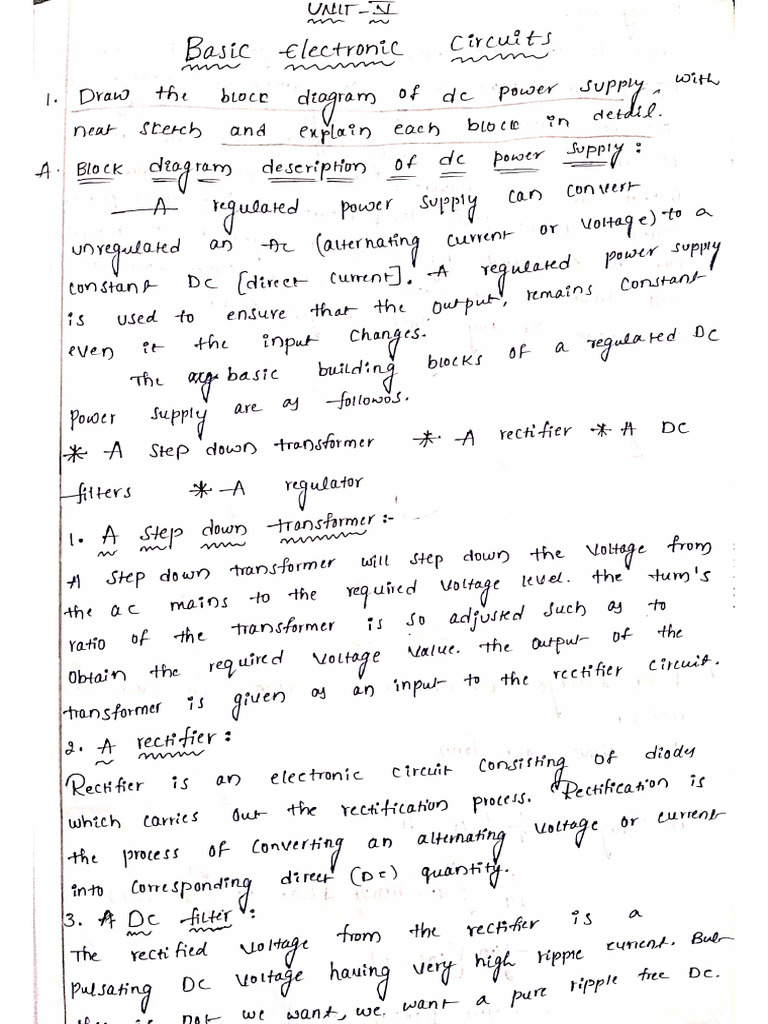 UNIT-IV
Basic Electronic Circuits
1. Draw the block diagram of dc power supply, with
neat sketch and explain each block in detail.
A. Block diagram description of dc power supply:
A regulated power supply can convert
unregulated an Ac (alternating current or voltage) to a
constant DC [direct current]. A regulated power supply
is used to ensure that the output, remains constant
even if the input changes.
The basic building blocks of a regulated DC
power supply are as followos.
* A step down transformer * A rectifier * A DC
filters * A regulator
1. A step down transformer:-
A step down transformer will step down the voltage from
the ac mains to the required voltage level. the turn's
ratio of the transformer is so adjusted such as to
obtain the required voltage value. the output of the
transformer is given as an input to the rectifier circuit.
2. A rectifier:
Rectifier is an electronic circuit consisting of diodes
which carries out the rectification process. Rectification is
the process of converting an alternating voltage or current
into corresponding direct (DC) quantity.
3. A DC filter:
The rectified voltage from the rectifier is a
pulsating DC voltage having very high ripple current. But
is not we want, we want a pure ripple free DC.